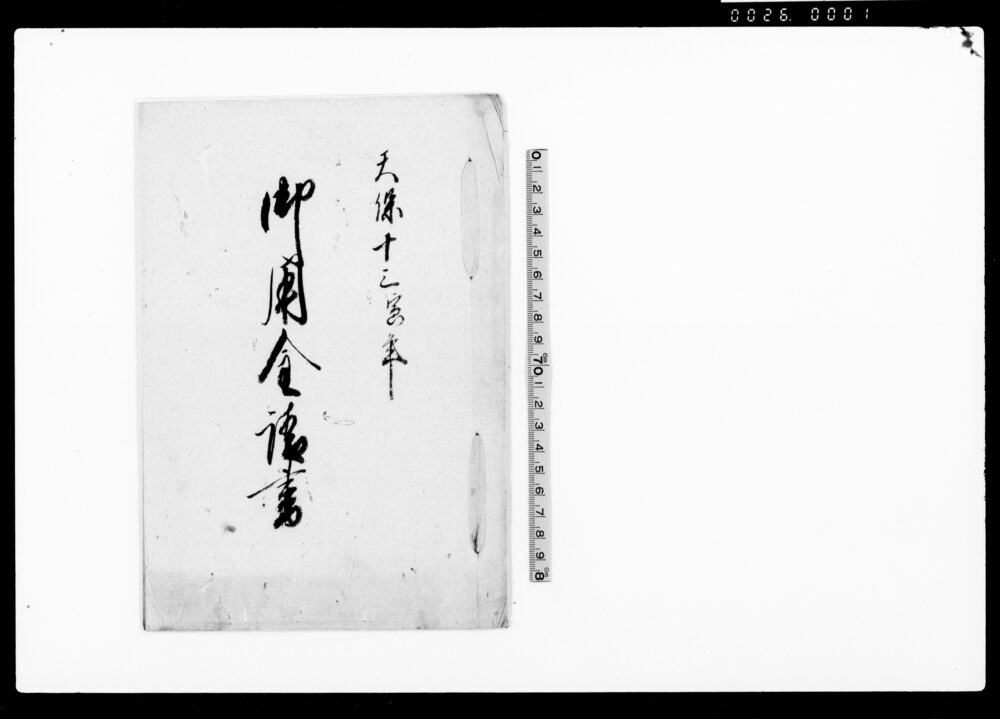 0026. 0001
天保十三寅年
御用金請書
0 1 2 3 4 5 6 7 8 9 10 1 2 3 4 5 6 7 8 9 8